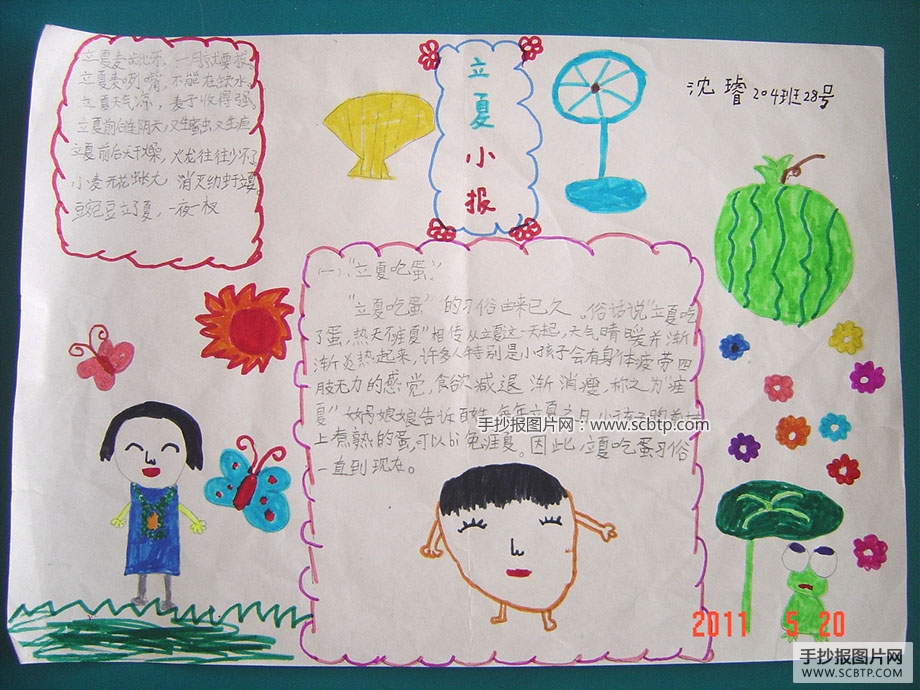 立夏小报
沈璿 204班28号
立夏麦呲牙，一月就要拔。
立夏麦咧嘴，不能在缺水。
立夏天气凉，麦子收得强。
立夏前后连阴天，又生蜜虫，又生疸
立夏前后天干燥，火龙往往少不了
小麦开花虫长大，消灭幼虫于立夏。
豌豆立了夏，一夜一杈
一、“立夏吃蛋”
“立夏吃蛋”的习俗由来已久。俗话说“立夏吃
了蛋，热天不疰夏”相传从立夏这一天起，天气晴暖并渐
渐炎热起来，许多人特别是小孩子会有身体疲劳四
肢无力的感觉，食欲减退渐消瘦，称之为“疰
夏”女娲娘娘告诉百姓，每年立夏之日，小孩子胸前挂
上煮熟的蛋，可以bì免疰夏。因此，立夏吃蛋习俗
一直到现在。
手抄报图片网：www.scbtp.com
2011 5 20
手抄报图片网
WWW.SCBTP.COM